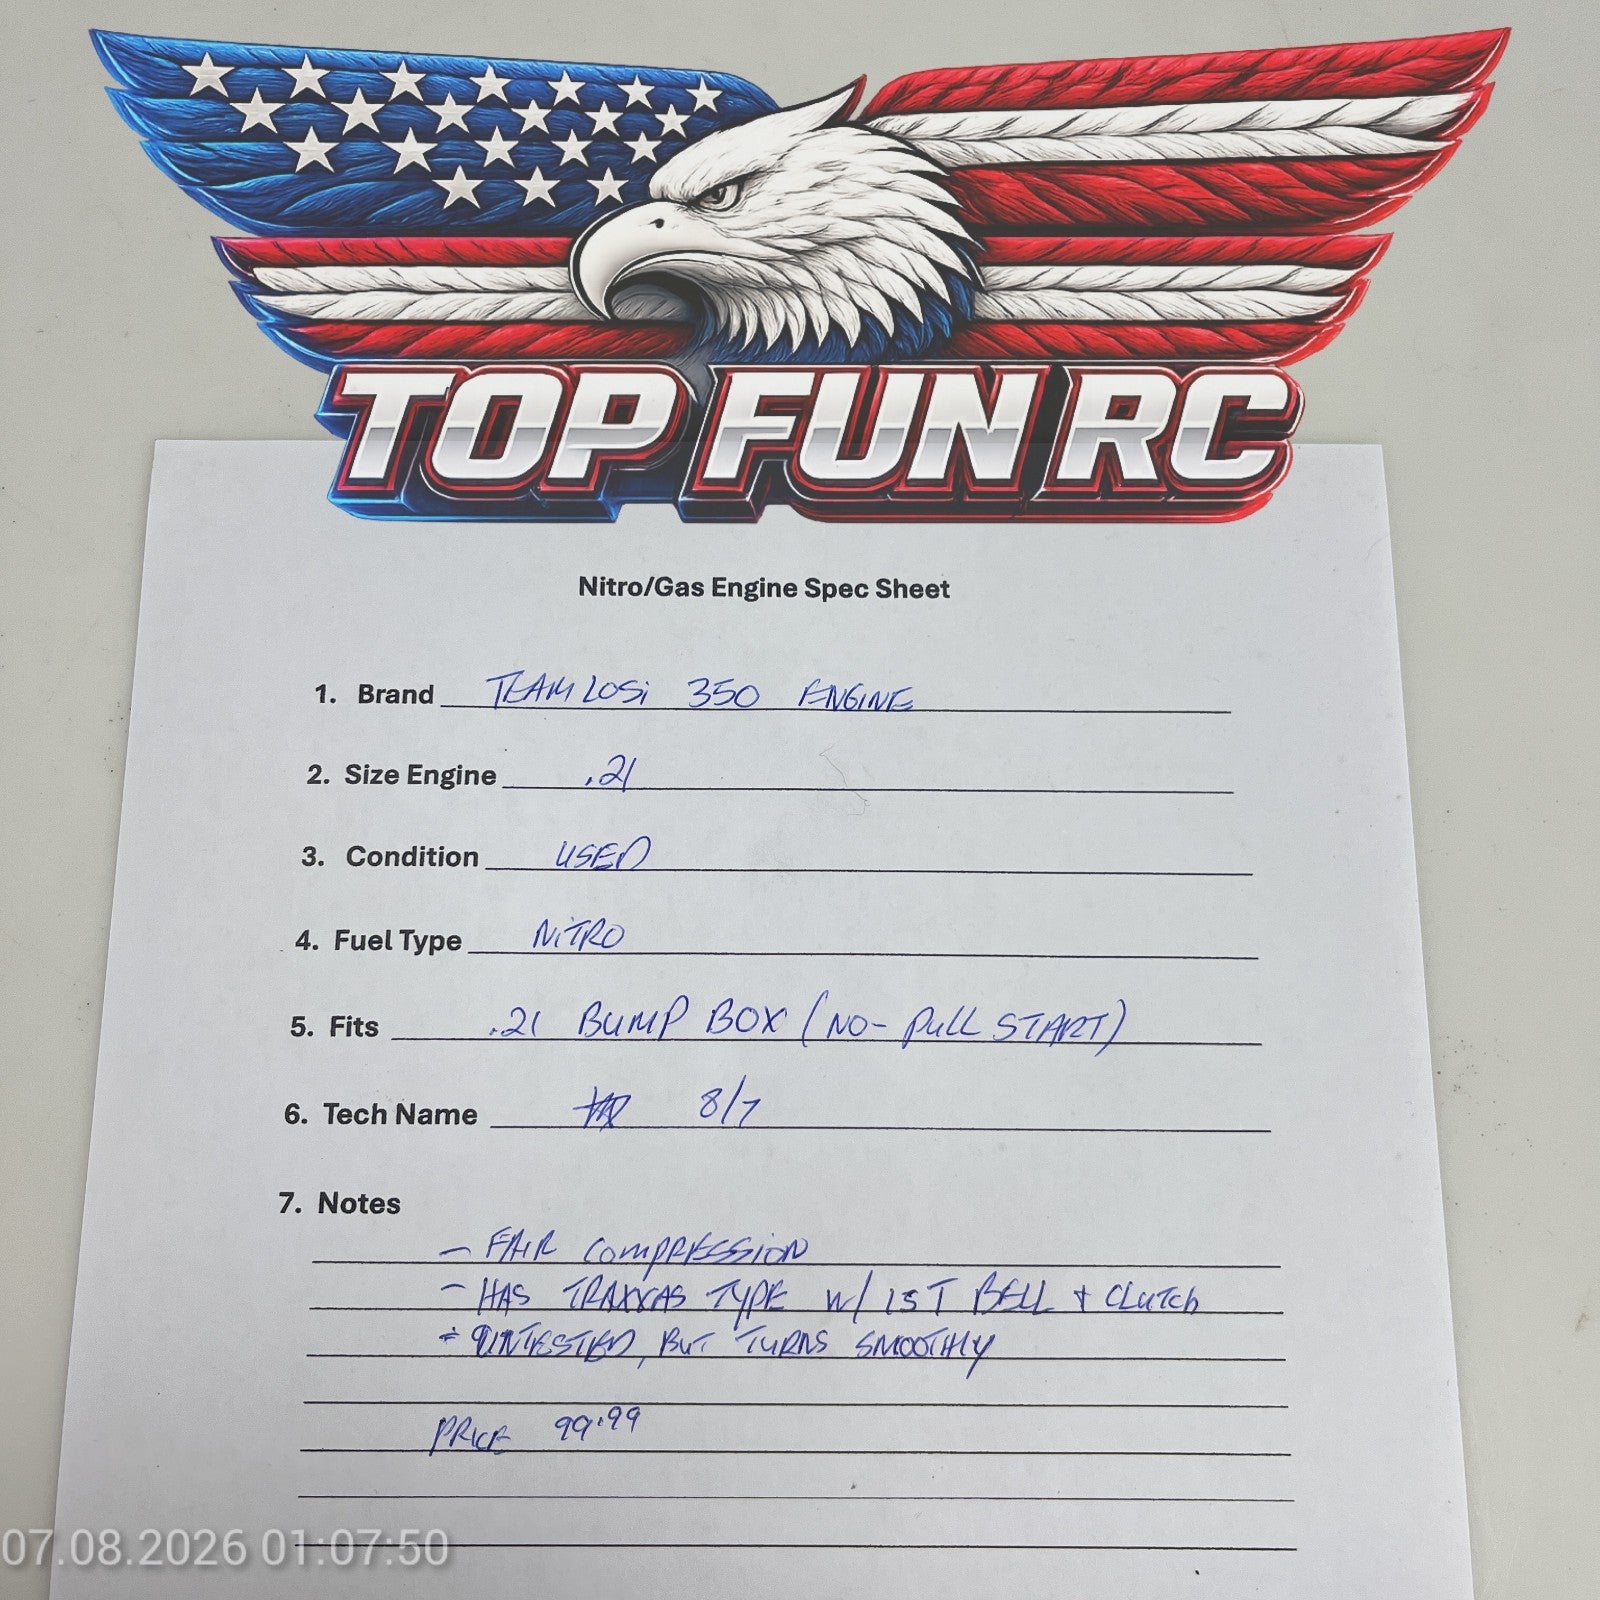 TOP FUN RC
Nitro/Gas Engine Spec Sheet
1. Brand TEAM LOSi 350 ENGINE
2. Size Engine .21
3. Condition USED
4. Fuel Type NiTRO
5. Fits .21 BUMP BOX (NO-PULL START)
6. Tech Name 8/7
7. Notes
- FAIR COMPRESSION
- HAS TRAXXAS TYPE W/ 15T BELL + CLUTCH
- UNTESTED, BUT TURNS SMOOTHLY
PRICE 99.99
07.08.2026 01:07:50